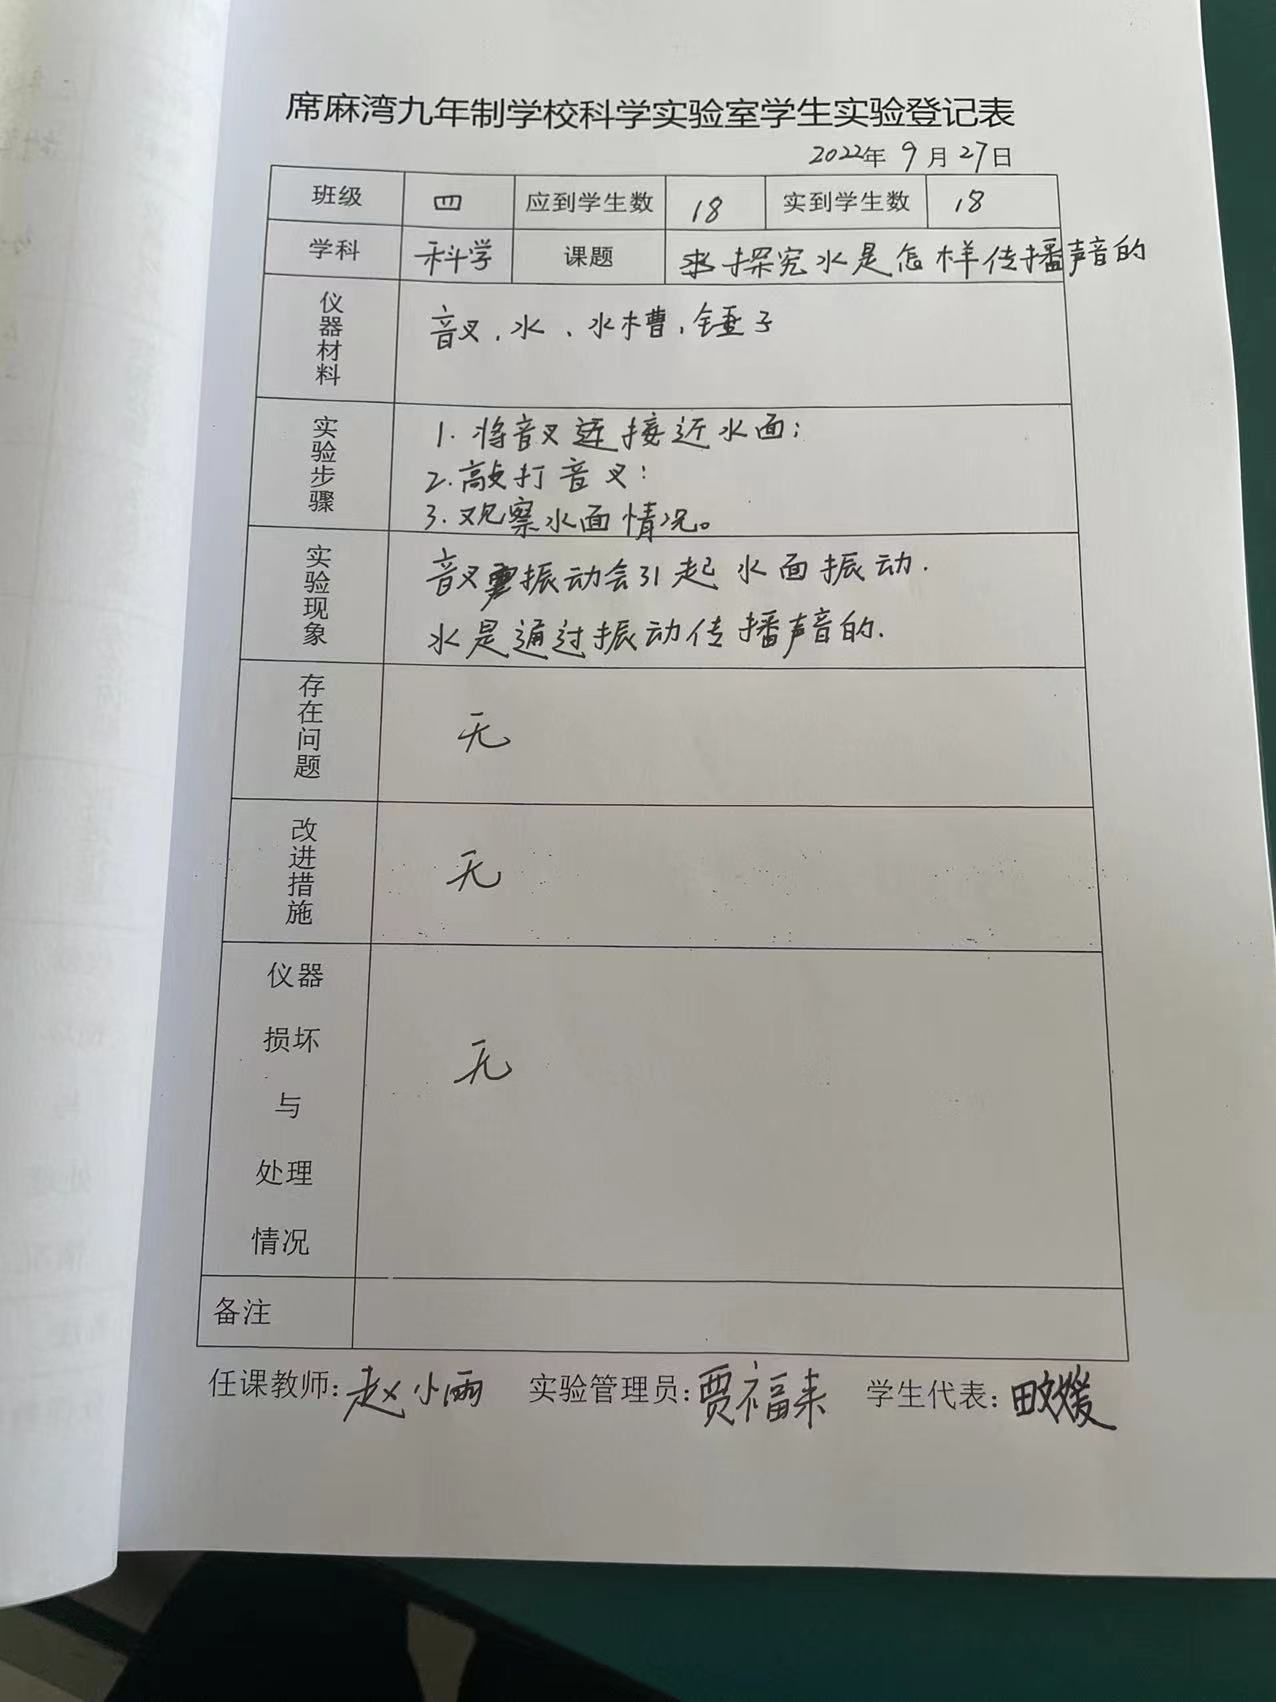 席麻湾九年制学校科学实验室学生实验登记表
2022年 9月27日
班级 四 应到学生数 18 实到学生数 18
学科 科学 课题 探究水是怎样传播声音的
仪器材料 音叉、水、水槽、锤子
实验步骤 1.将音叉接近水面;
2.敲打音叉:
3.观察水面情况。
实验现象 音叉振动会引起水面振动.
水是通过振动传播声音的.
存在问题 无
改进措施 无
仪器
损坏
与
处理
情况
无
备注
任课教师:赵小雨 实验管理员:贾福来 学生代表:田媛